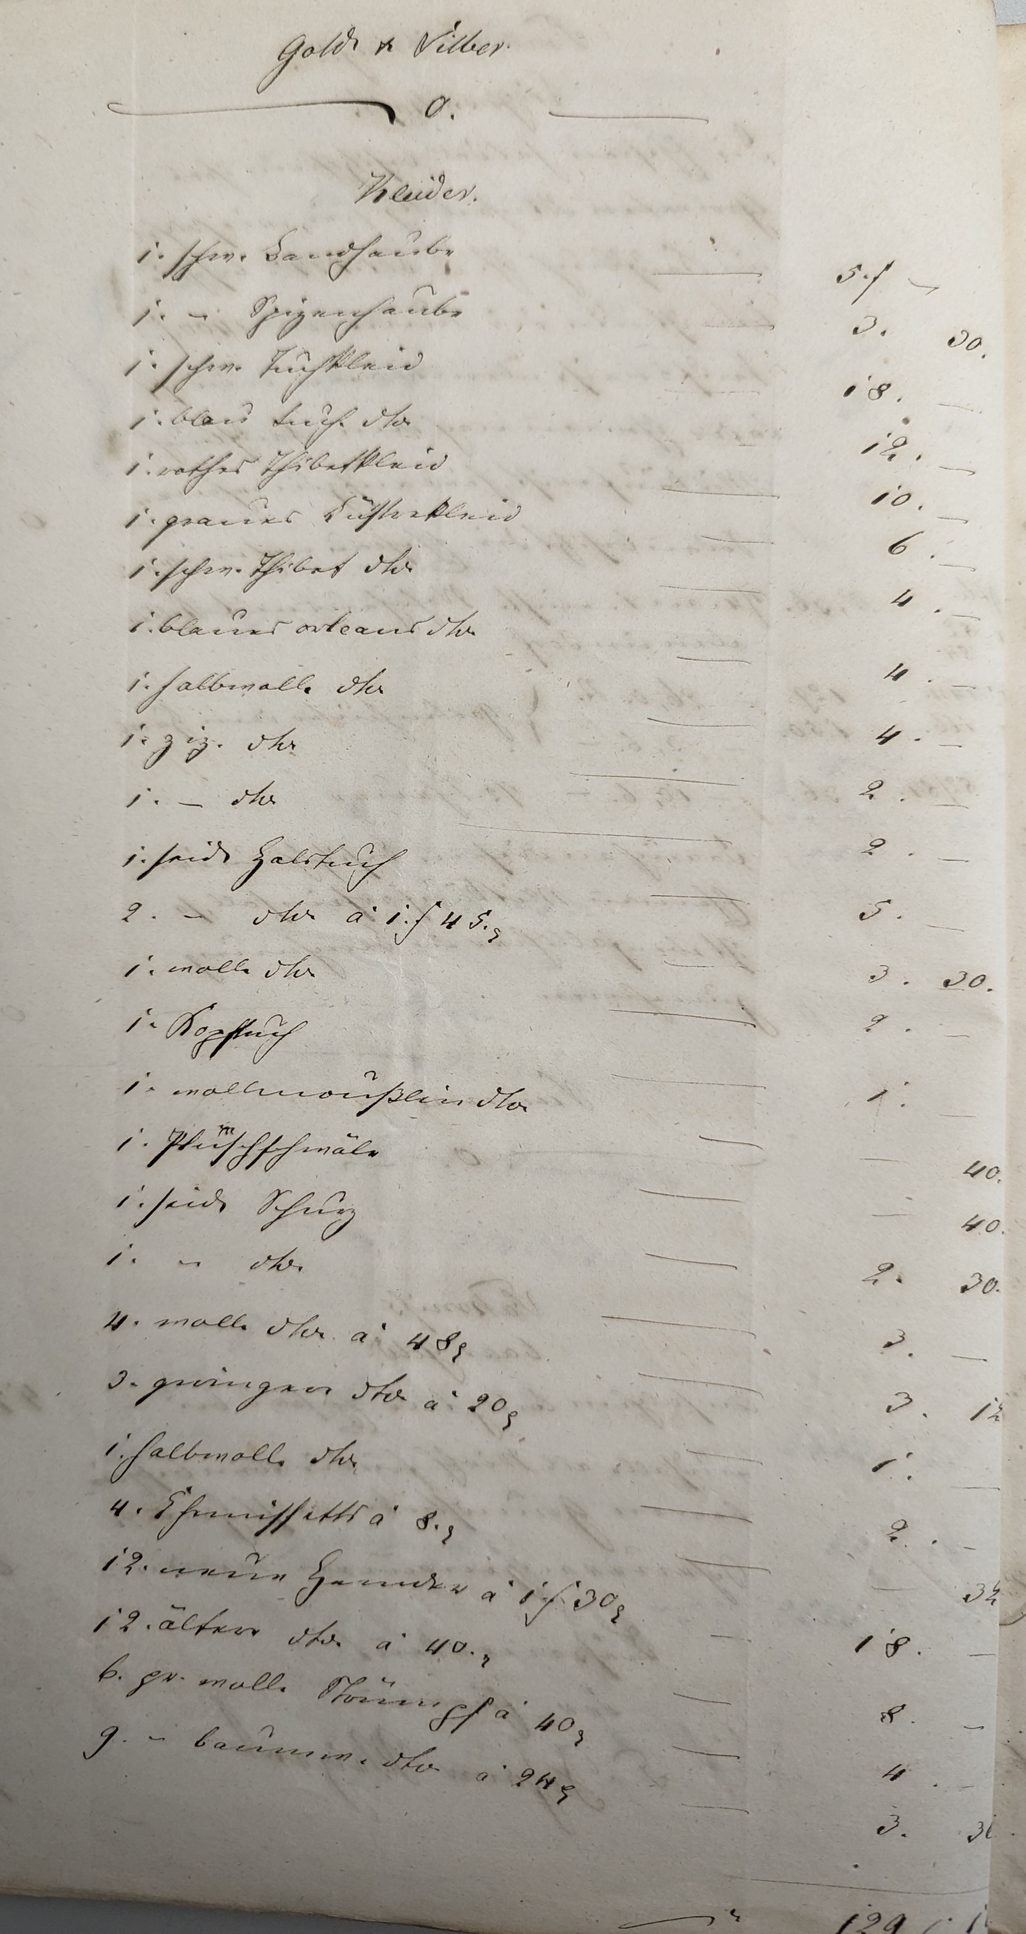 Gold & Silber.
0.
Kleider.
1. schw. Bandhaube 5. f —
1. — Spizenhaube 3. 30.
1. schw. Tuchkleid 18. —
1. blau tuch. dto 12. —
1. rothes Thibetkleid 10. —
1. graues Lüsterkleid 6. —
1. schw. Thibet dto 4. —
1. blaues orleans dto 4. —
1. halbwoll. dto 4. —
1. ziz. dto 2. —
1. — dto 2. —
1. seid. Halstuch 5. —
2. — dto à 1. f 45. 3. 30.
1. woll. dto 2. —
1. Kopftuch 1. —
1. wollmoußlin dto — 40.
1. — 40.
1. seid. Schurz 2. 30.
1. — dto. 3. —
4. woll. dto à 48 3. 12
3. geringere dto à 20 1. —
1. halbwoll. dto 2. —
4. Chemissetts à 8. — 32
12. neue Hemder à 1 f 30 18. —
12. ältere dto à 40. 8. —
6. pr. woll. Strümpf à 40 4. —
9. — baumw. dto à 24 3. 36
129